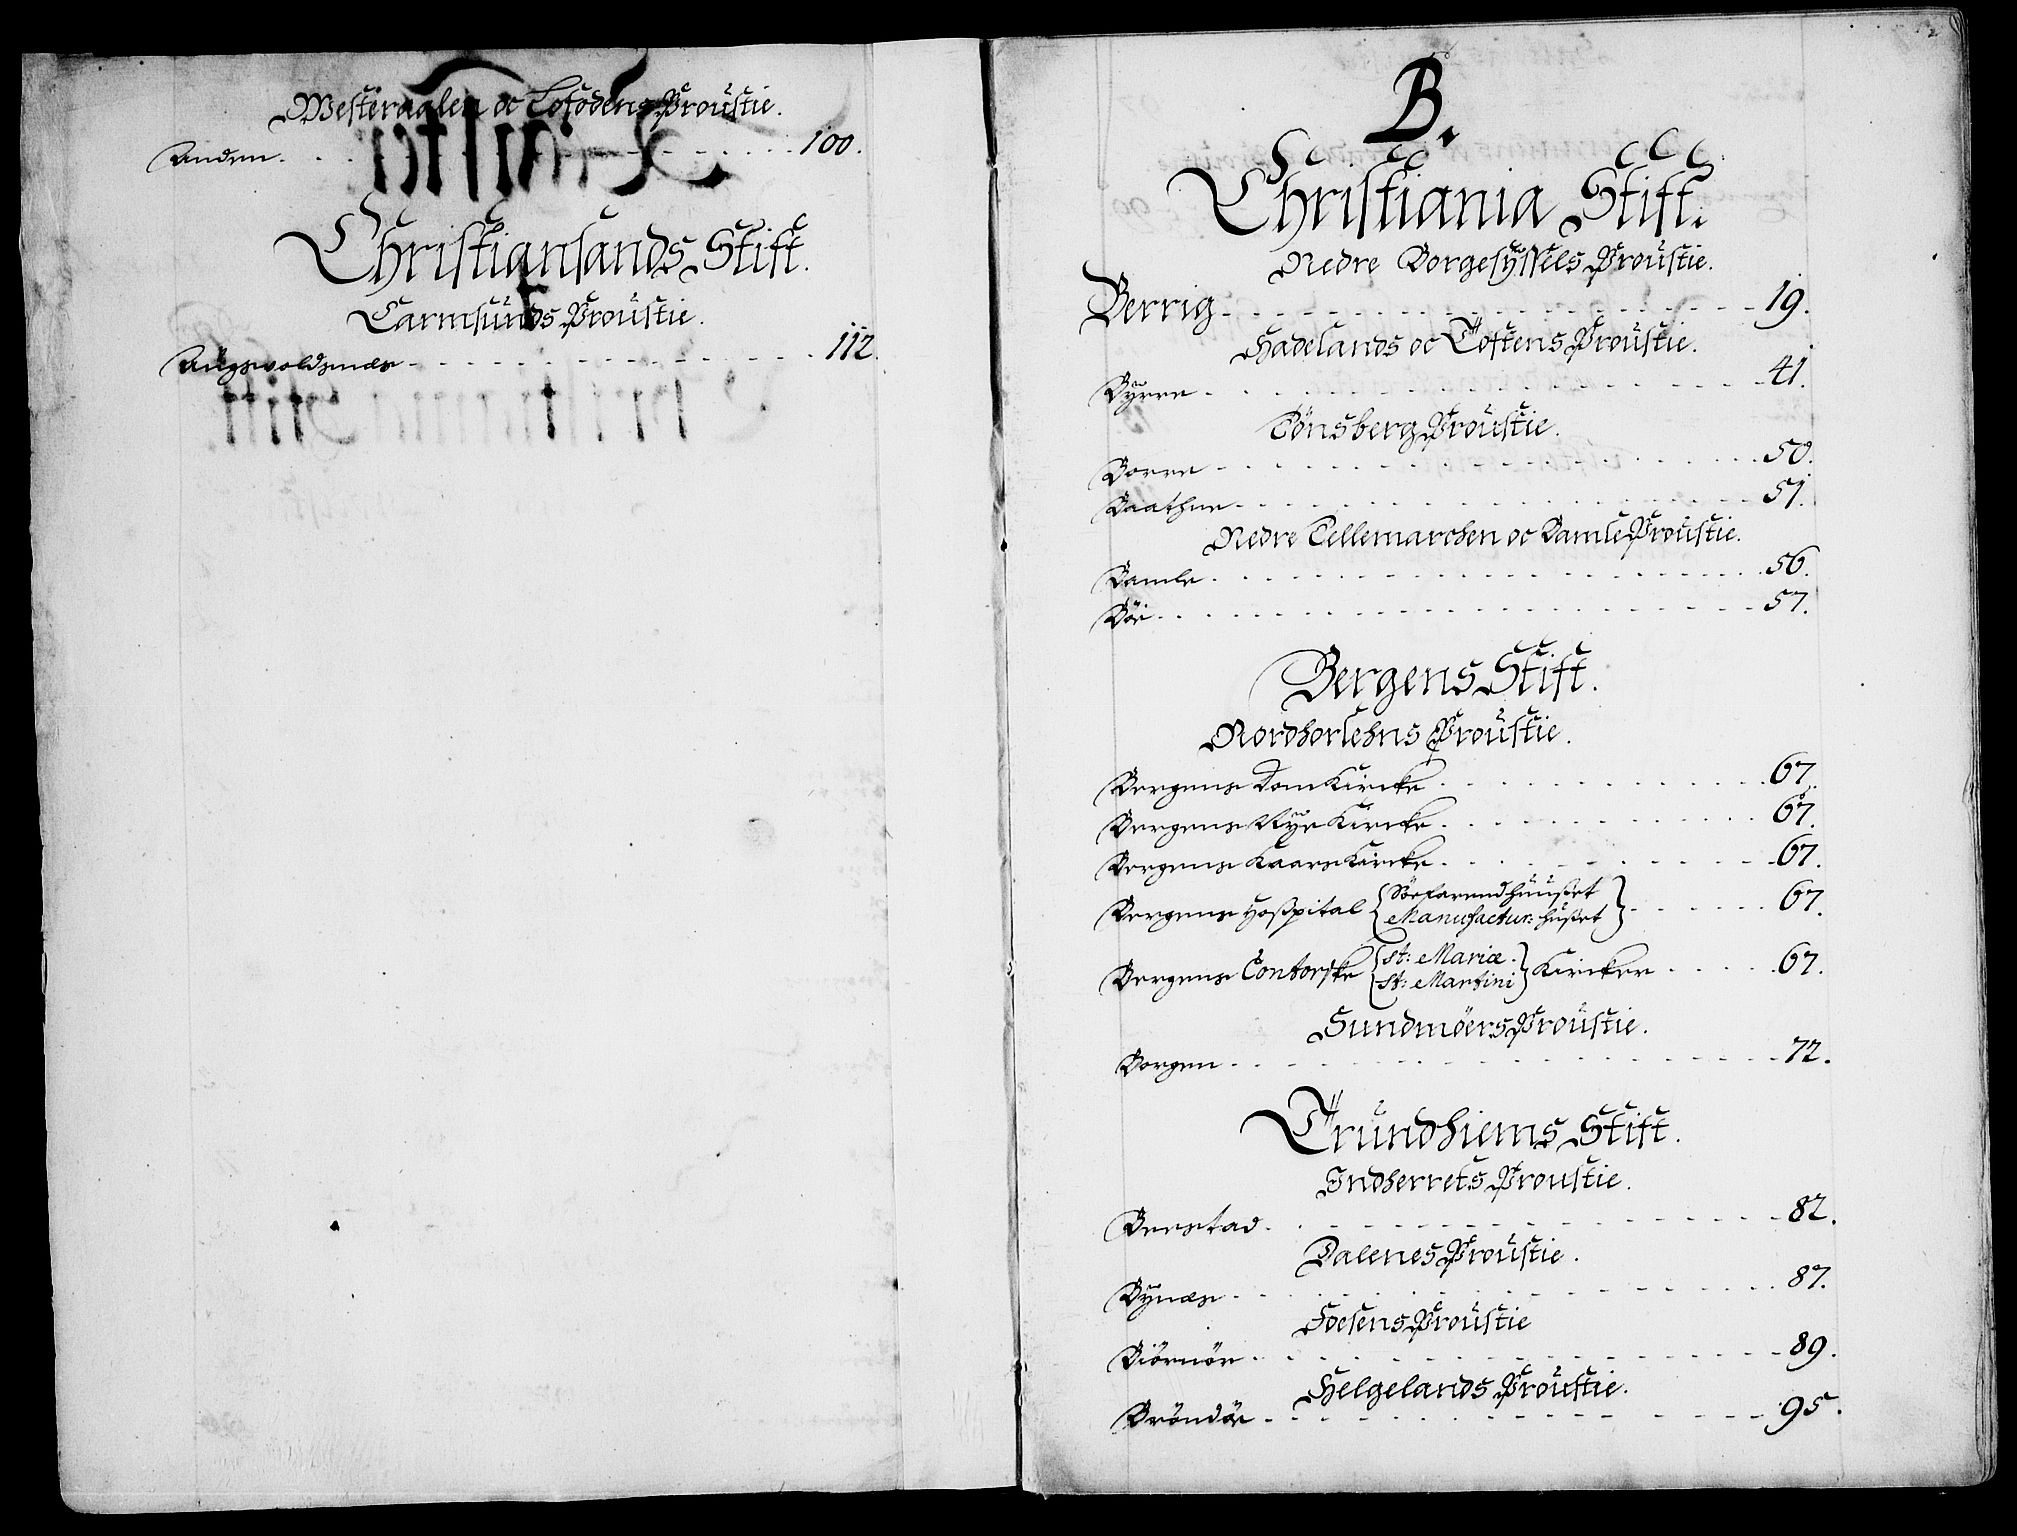 Westeraalen oc Lofodens Proustie.
Anden. 100.
Christiansands Stift.
Carmsunds Proustie.
Augswoldsnæs 112.
B.
Christiania Stift.
Nedre Borgesÿssels Proustie.
Berrig 19.
Hadelands oc Toftens Proustie.
Byrre 41.
Tönsberg Proustie.
Borre 50.
Baathne 51.
Nedre Tellemarchen oc Bamle Proustie.
Bamle 56.
Böe 57.
Bergens Stift.
Nordhorlehns Proustie.
Bergens Dom Kircke 67.
Bergens Nye Kircke 67.
Bergens Kaars Kircke 67.
Bergens Hoßpital { Söefarendhuußet
Manufactur: hußet } 67.
Bergens Contorske { St: Mariæ.
St: Martini } Kircker 67.
Sundmöers Proustie.
Borgen 72.
Trundhiems Stift.
Indherrets Proustie.
Beestad 82.
Dalenes Proustie.
Bynæs 87.
Foesens Proustie
Biörnör 89.
Helgelands Proustie.
Bröndöe 95.